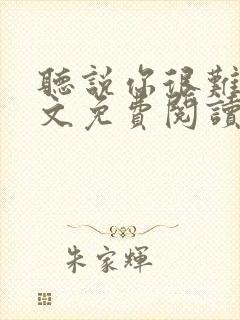 聽說你很難
文免費閱讀
朱家輝